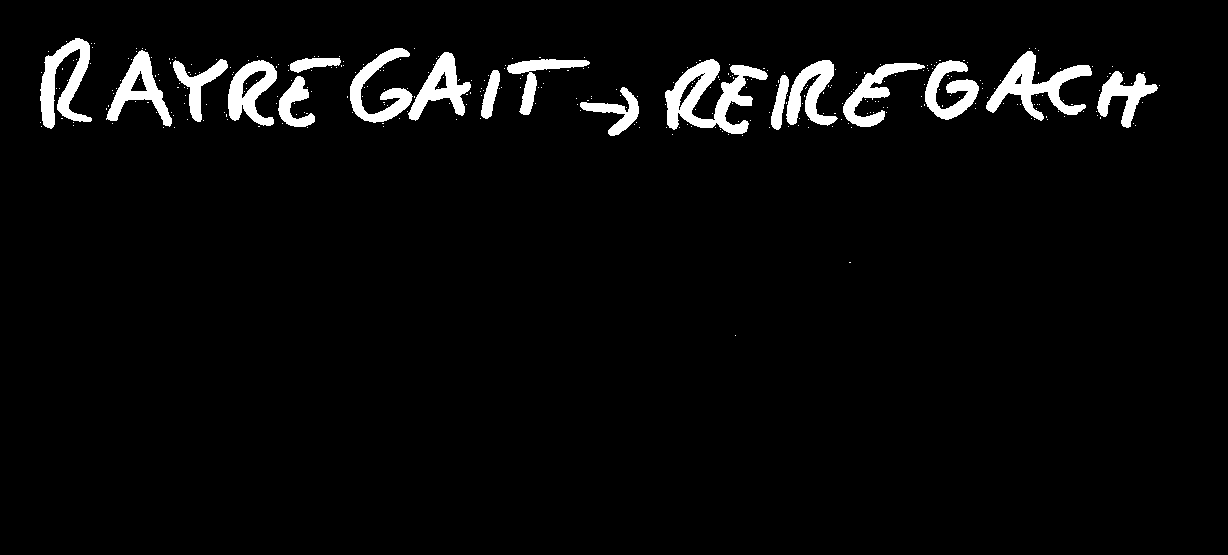 RAYRE GAIT → REIRE GACH